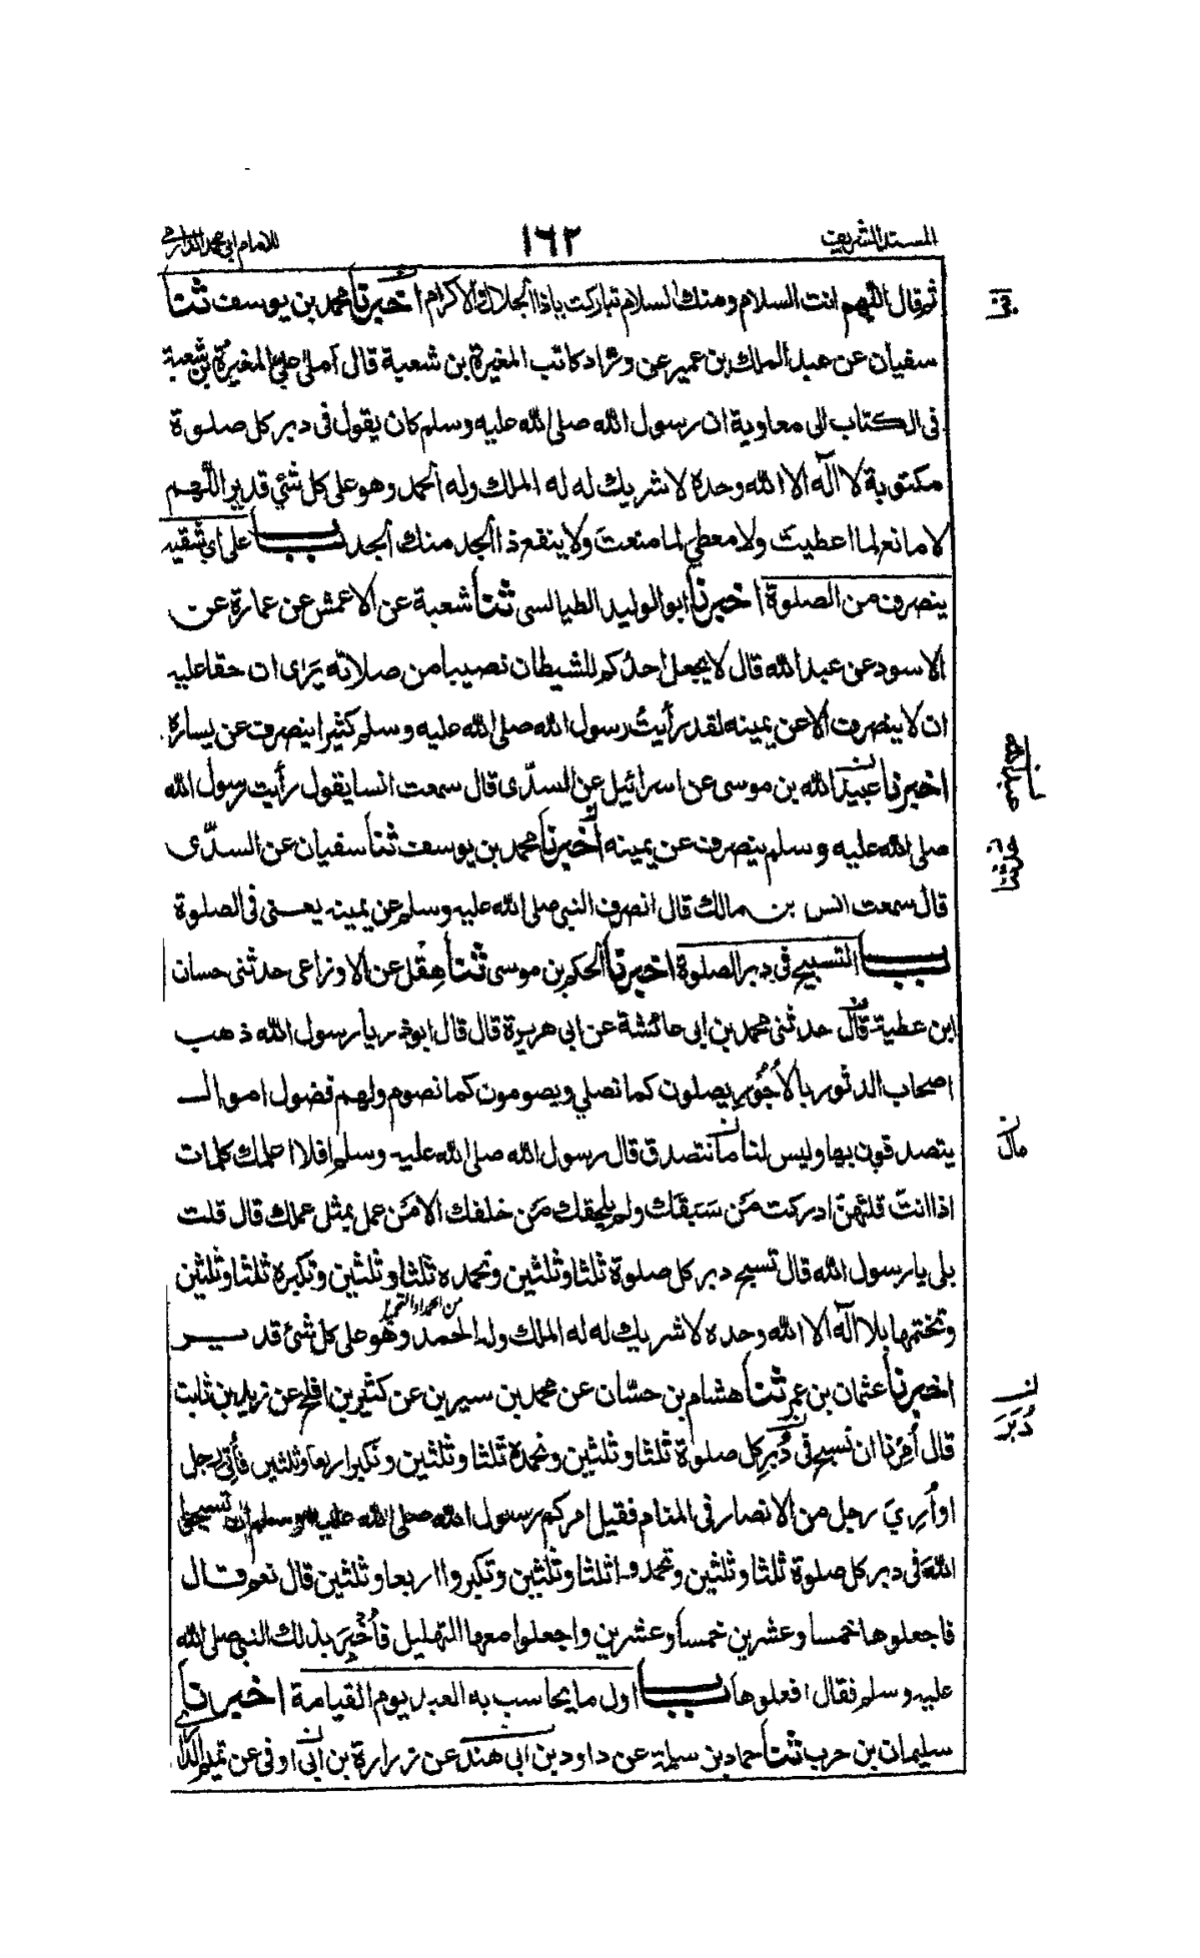 المسند الشريف ١٦٢ للامام ابي محمد الدارمي
ثم قال اللهم انت السلام ومنك السلام تباركت ياذا الجلال والاكرام اخبرنا محمد بن يوسف ثنا
سفيان عن عبد الملك بن عمير عن وراد كاتب المغيرة بن شعبة قال املى علي المغيرة بن شعبة
فى الكتاب الى معاوية ان رسول الله صلى الله عليه وسلم كان يقول فى دبر كل صلوة
مكتوبة لا اله الا الله وحده لا شريك له له الملك وله الحمد وهو على كل شئي قدير اللهم
لا مانع لما اعطيت ولا معطي لما منعت ولا ينفع ذا الجد منك الجد باب على اى شقيه
ينصرف من الصلوة اخبرنا ابو الوليد الطيالسى ثنا شعبة عن الاعمش عن عمارة عن
الاسود عن عبد الله قال لا يجعل احدكم للشيطان نصيبا من صلاته يَرَى ان حقا عليه
ان لا ينصرف الا عن يمينه لقد رأيتُ رسول الله صلى الله عليه وسلم كثيرا ينصرف عن يساره
اخبرنا عبيد الله بن موسى عن اسرائيل عن السدّى قال سمعت انسا يقول رأيت رسول الله
صلى الله عليه وسلم ينصرف عن يمينه اخبرنا محمد بن يوسف ثنا سفيان عن السدّى
قال سمعت انس بن مالك قال انصرف النبي صلى الله عليه وسلم عن يمينه يعنى فى الصلوة
باب التسبيح فى دبر الصلوة اخبرنا الحكم بن موسى ثنا هِقْل عن الاوزاعى حدثنى حسان
ابن عطية قال حدثنى محمد بن ابى عائشة عن ابى هريرة قال قال ابوذر يا رسول الله ذهب
اصحاب الدثور بالأُجُورِ يصلون كما نصلي ويصومون كما نصوم ولهم فضول اموال
يتصدقون بها وليس لنا ما نتصدق قال رسول الله صلى الله عليه وسلم افلا اعلمك كلمات
اذا انتَ قلتهنّ ادركت مَن سَبَقَك ولم يلحقك مَن خلفك الا مَن عمل بمثل عملك قال قلت
بلى يا رسول الله قال تسبح دبر كل صلوة ثلثا وثلثين وتحمده ثلثا وثلثين وتكبره ثلثا وثلثين
وتختمها بلا اله الا الله وحده لا شريك له له الملك وله الحمد وهو على كل شئ قدير
اخبرنا عثمان بن عمر ثنا هشام بن حسّان عن محمد بن سيرين عن كثير بن افلح عن زيد بن ثابت
قال أُمِرْنا ان نسبح فى دُبرِ كل صلوة ثلثا وثلثين ونحمده ثلثا وثلثين ونكبر اربعا وثلثين فأُتى رجل
او أُرِيَ رجل من الانصار فى المنام فقيل امركم رسول الله صلى الله عليه وسلم ان تسبحوا
اللهَ فى دبر كل صلوة ثلثا وثلثين وتحمدوا ثلثا وثلثين وتكبروا اربعا وثلثين قال نعم قال
فاجعلوها خمسا وعشرين خمسا وعشرين واجعلوا معها التهليل فأُخْبِرَ بذلك النبي صلى الله
عليه وسلم فقال افعلوها باب اول ما يحاسب به العبد يوم القيامة اخبرنا
سليمان بن حرب ثنا حماد بن سلمة عن داود بن ابى هند عن زرارة بن ابى اوفى عن تميم الدا
عبد الله
حدثنا
مال
دُبَرَ